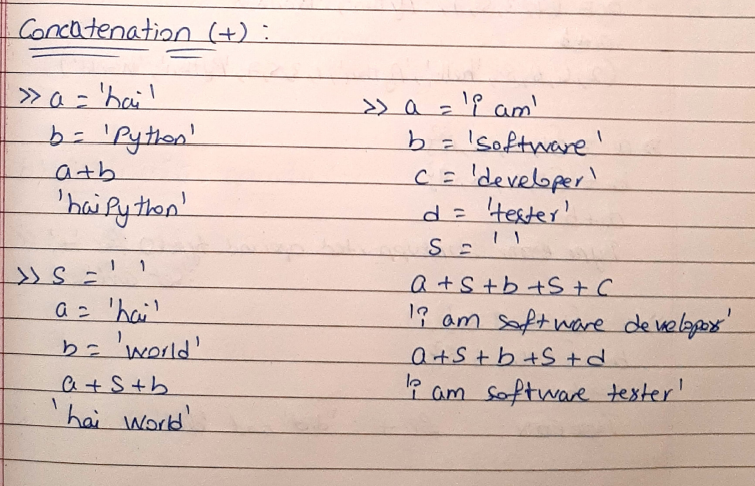 Concatenation (+) :
>> a = 'hai'
b = 'Python'
a+b
'haiPython'
>> s = ' '
a = 'hai'
b = 'world'
a + s + b
'hai world'
>> a = 'i am'
b = 'software'
c = 'developer'
d = 'tester'
s = ' '
a + s + b + s + c
'i am software developer'
a + s + b + s + d
'i am software tester'